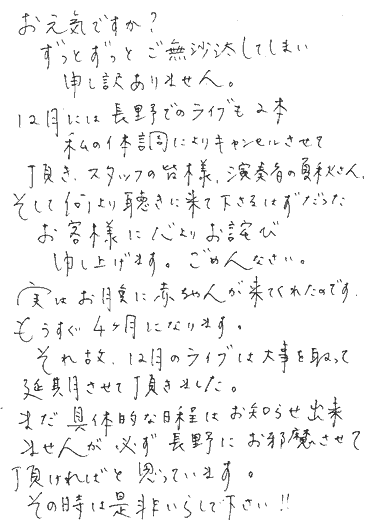 お元気ですか?
ずっとずっとご無沙汰してしまい
申し訳ありません。
12月には長野でのライブも2本
私の体調によりキャンセルさせて
頂き、スタッフの皆様、演奏者の真秋さん、
そして何より聴きに来て下さるはずだった
お客様に心よりお詫び
申し上げます。ごめんなさい。
実はお腹に赤ちゃんが来てくれたのです。
もうすぐ4ヶ月になります。
それ故、12月のライブは大事を取って
延期させて頂きました。
まだ具体的な日程はお知らせ出来
ませんが必ず長野にお邪魔させて
頂ければと思っています。
その時は是非いらして下さい!!